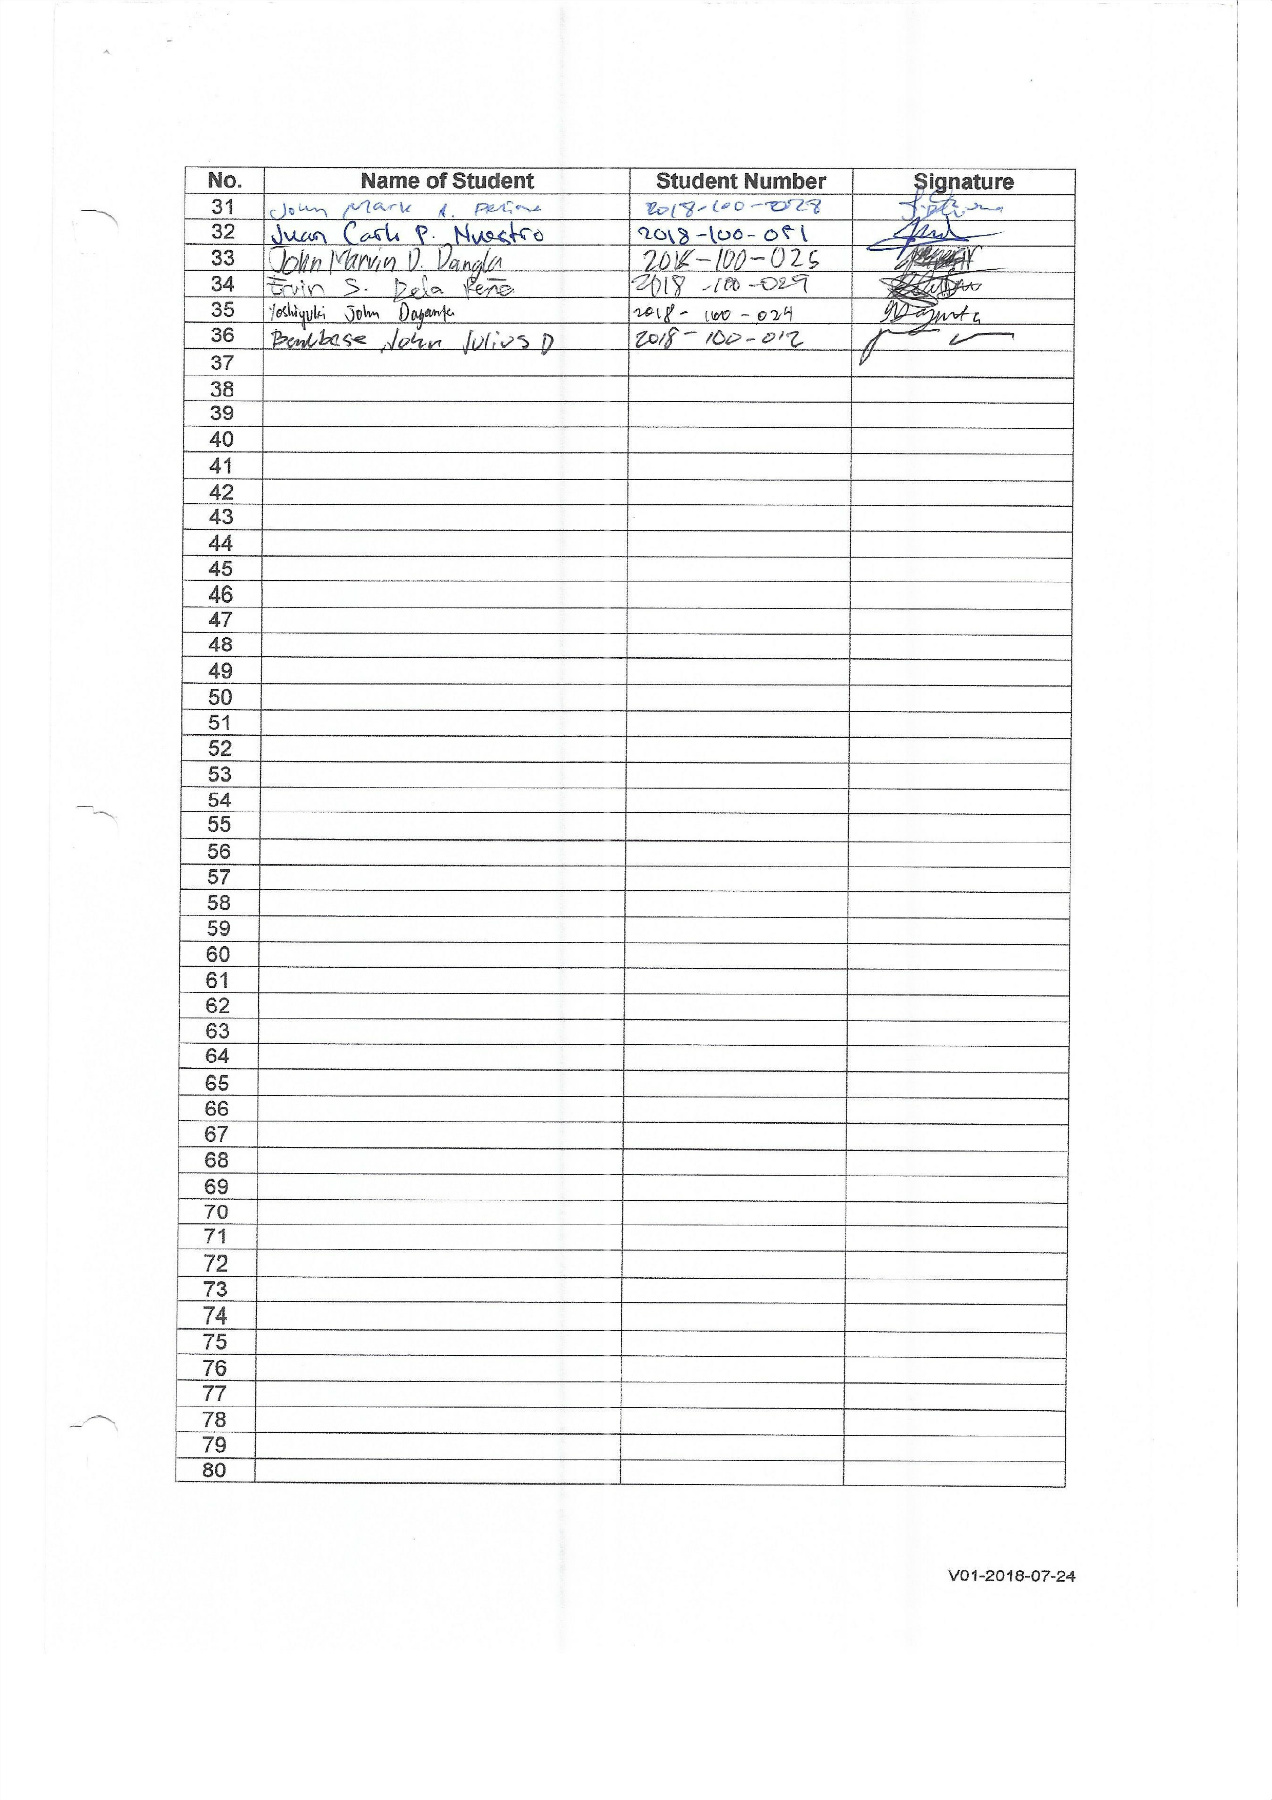 No. Name of Student Student Number Signature
31 John Mark 2018-100-028
32 Juan Carlo P. Nuestro 2018-100-051
33 John Marvin D. Dangla 2018-100-025
34 Ervin S. Dela Peña 2018-100-029
35 Yoshiyuki John 2018-100-024
36 John Julius D 2018-100-012
37
38
39
40
41
42
43
44
45
46
47
48
49
50
51
52
53
54
55
56
57
58
59
60
61
62
63
64
65
66
67
68
69
70
71
72
73
74
75
76
77
78
79
80
V01-2018-07-24